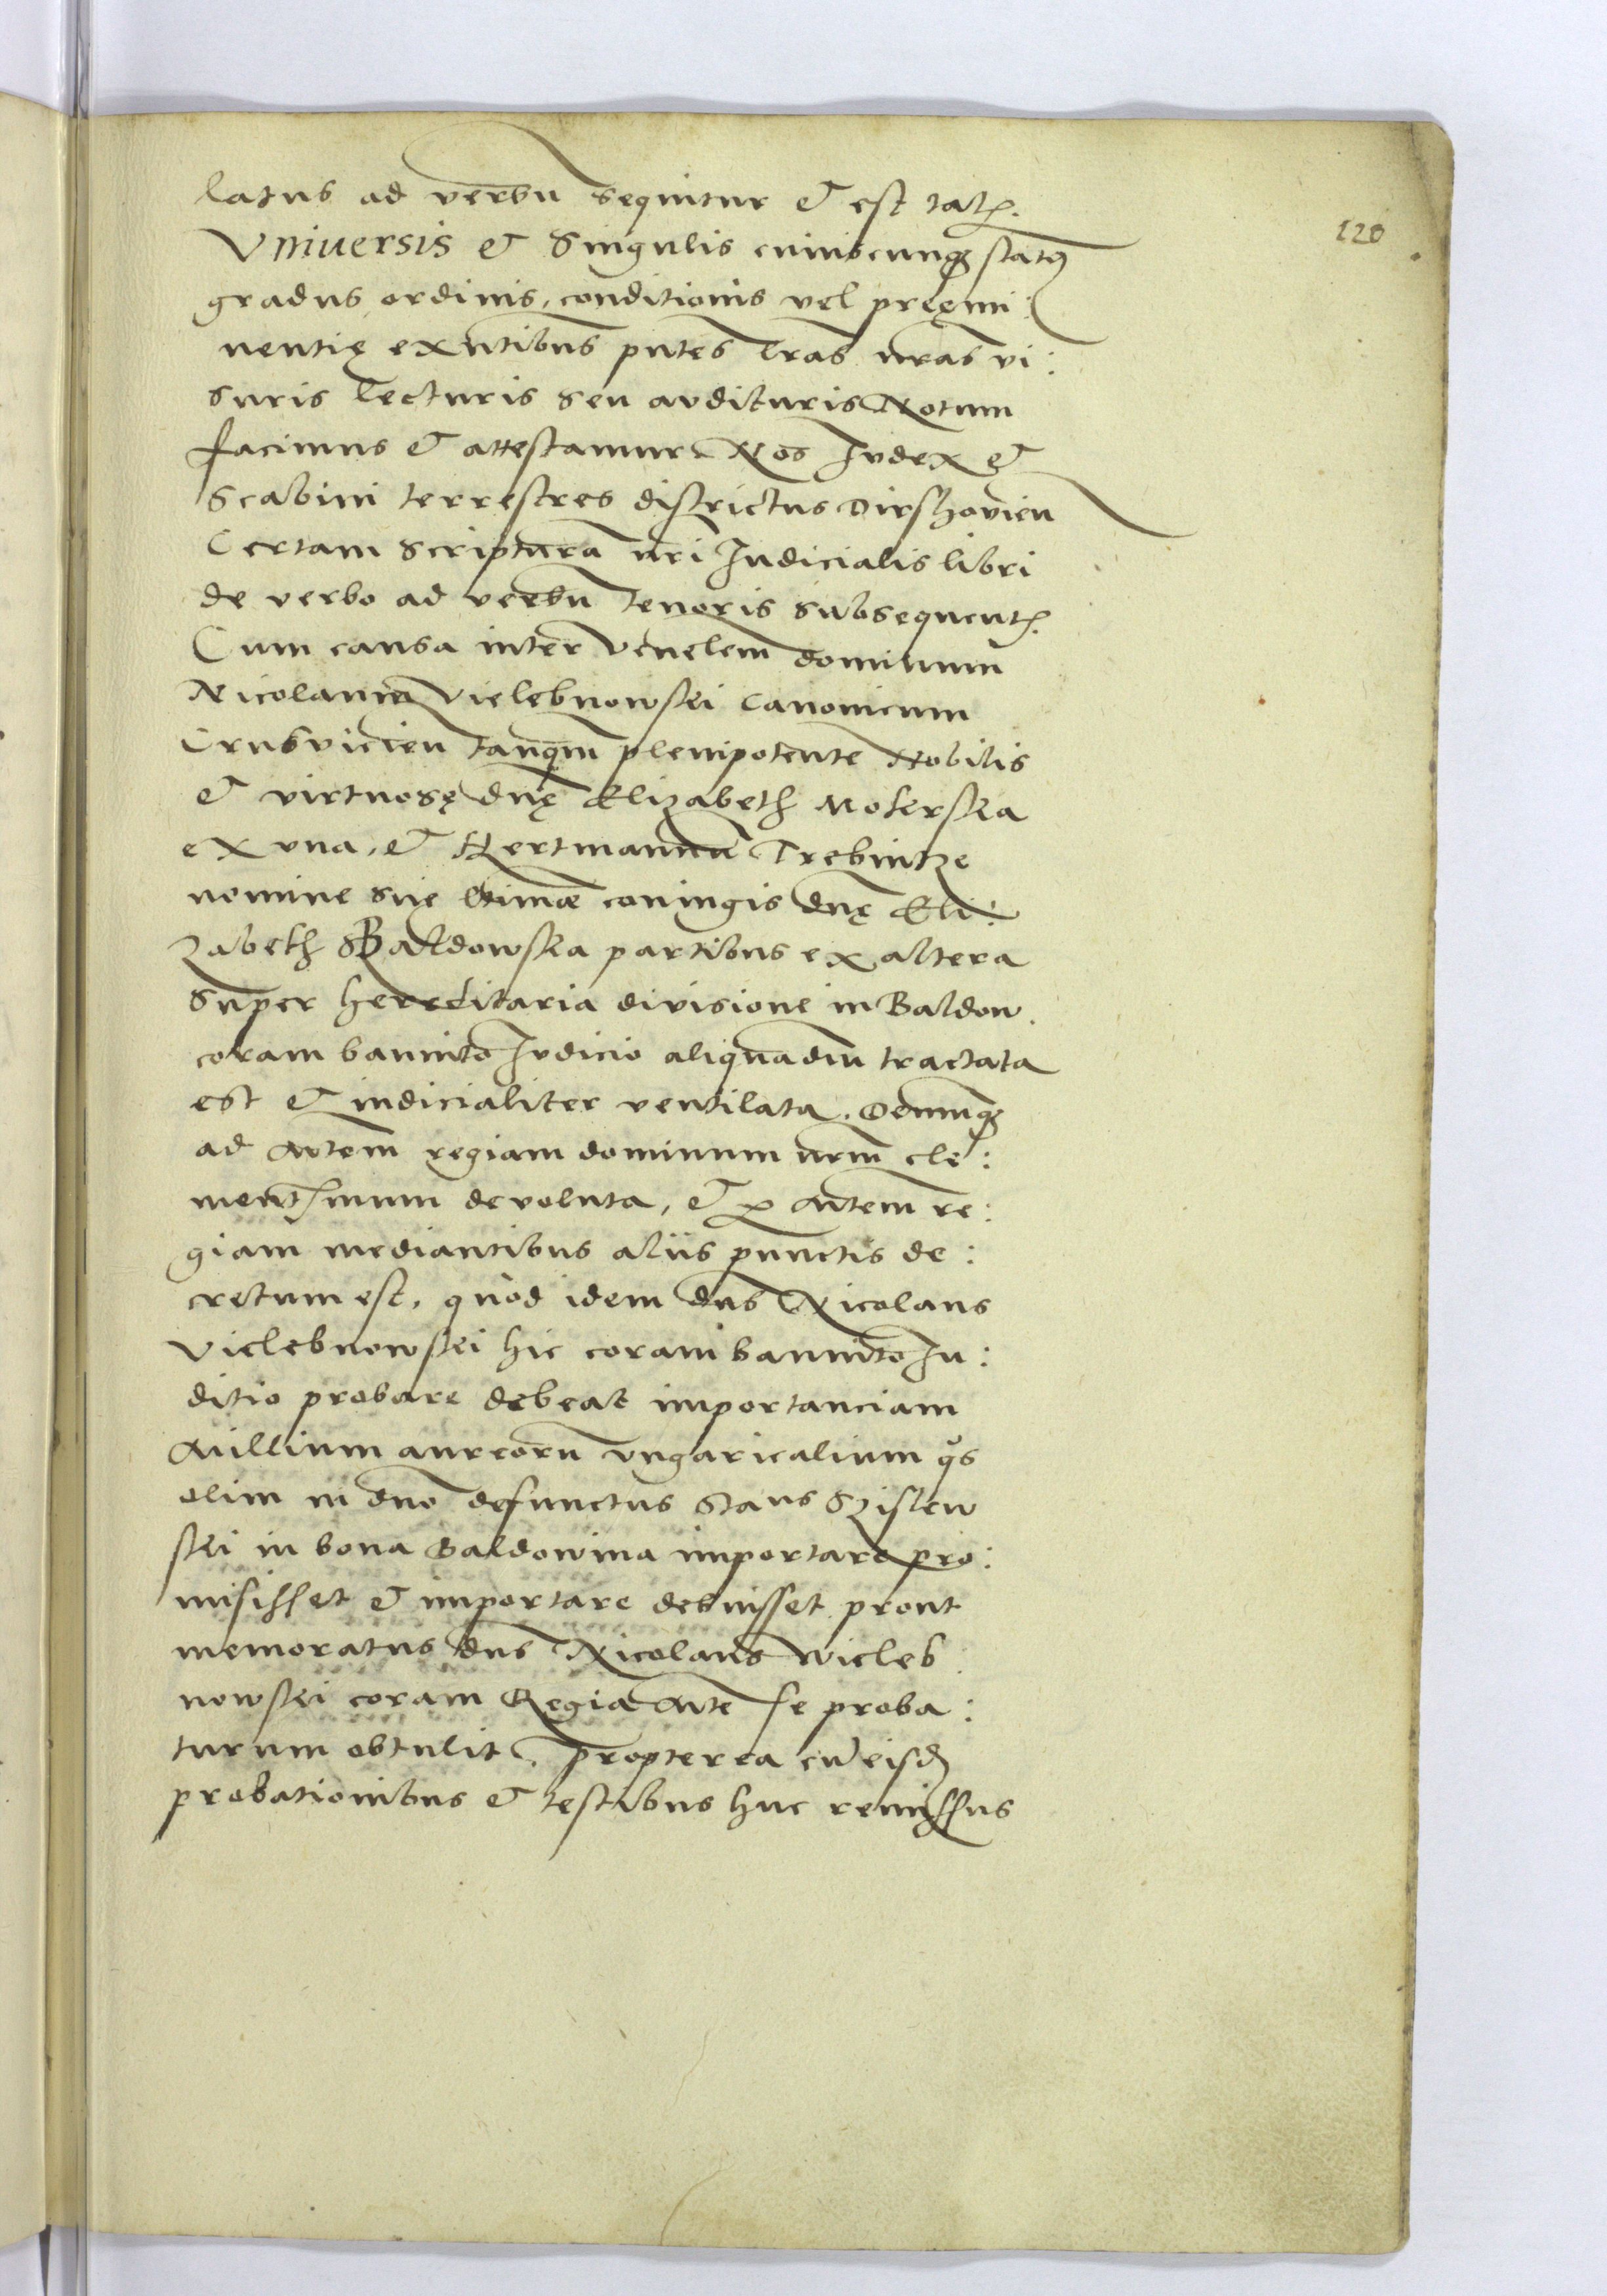 latus ad verbū sequitur & est talꝭ.
120
Vniuersis & Singulis cuiuscunqꝫ statꝯ
gradus ordinis, conditionis vel preęmi:
nentię exn̄tibus pn̄tes Lr̄as nr̄as vi:
suris Lecturis seu audituris Notum
facimus & attestamur Nos Iudex &
Scabini terrestres districtus Dirshovien̄
Certam Scripturā nr̄i Iudicialis libri
de verbo ad verbū tenoris subsequentꝭ.
Cum causa inter Ven̄elem dominum
Nicolaum Vielebnowski Canonicum
Crusvicien̄ tanq̄m plenipotentē Nobilis
& virtuosę dn̄ę Elizabeth Mokerska
ex vna, & Hertmannū Trebintze
nomine suę l̄timæ coniugis dn̄ę Eli:
zabeth Baldowska partibus ex altera
super hereditaria divisione in Baldow.
coram bannito Iudicio aliquadiu tractata
est & iudicialiter ventilata. Demumqꝫ
ad M̄tem regiam dominum nr̄m cle:
mentꝭmum devoluta, & ꝑ M̄tem re:
giam mediantibus aliis punctis de:
cretum est, quod idem dn̄s Nicolaus
Vielebnowski hic coram bannito Iu:
ditio probare debeat importanciam
Millium aureorū vngaricalium qͦs
olim in dn̄o defunctus Stan̄s Szislew
ski in bona Baldowina importare pro:
misisset & importare debuisset prout
memoratus dn̄s Nicolaus Wieleb
nowski coram Regia M̄te se proba:
turum obtulit. Propterea cū eisdꝫ
probationibus & testibus huc remissus